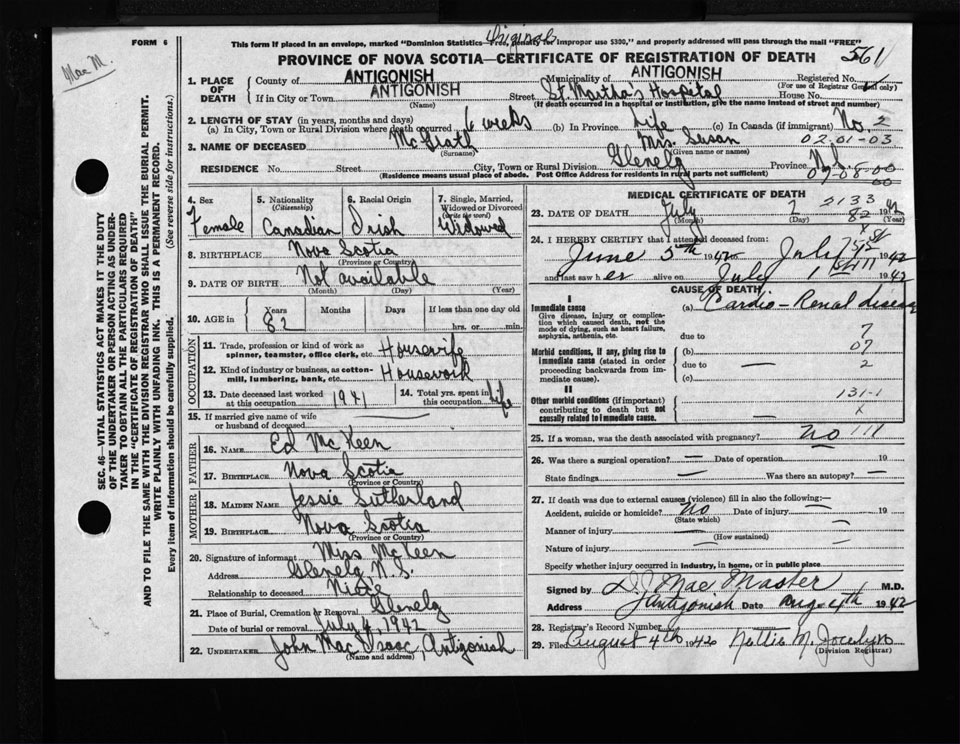 Mac M.
FORM 6
Original
This form if placed in an envelope, marked "Dominion Statistics—Free, penalty for improper use $300," and properly addressed will pass through the mail "FREE"
PROVINCE OF NOVA SCOTIA—CERTIFICATE OF REGISTRATION OF DEATH
561
1. PLACE OF DEATH
County of ANTIGONISH Municipality of ANTIGONISH Registered No.
(For use of Registrar General only)
If in City or Town ANTIGONISH Street St. Martha's Hospital House No.
(Name) (If death occurred in a hospital or institution, give the name instead of street and number)
2. LENGTH OF STAY (in years, months and days)
(a) In City, Town or Rural Division where death occurred 6 weeks (b) In Province Life (c) In Canada (if immigrant) No. 2
3. NAME OF DECEASED McGrath Mrs. Susan 02-01-03
(Surname) (Given name or names)
RESIDENCE No. Street City, Town or Rural Division Glenelg Province N.S.
(Residence means usual place of abode. Post Office Address for residents in rural parts not sufficient) 07-08-00
00
4. Sex Female
5. Nationality (Citizenship) Canadian
6. Racial Origin Irish
7. Single, Married, Widowed or Divorced (write the word) Widowed
8. BIRTHPLACE Nova Scotia
(Province or Country)
9. DATE OF BIRTH Not available
(Month) (Day) (Year)
10. AGE in Years Months Days If less than one day old
82 hrs. or min.
OCCUPATION
11. Trade, profession or kind of work as spinner, teamster, office clerk, etc. Housewife
12. Kind of industry or business, as cotton-mill, lumbering, bank, etc. Housework
13. Date deceased last worked at this occupation 1941
14. Total yrs. spent in this occupation life
15. If married give name of wife or husband of deceased
FATHER
16. NAME Ed McKeen
17. BIRTHPLACE Nova Scotia
(Province or Country)
MOTHER
18. MAIDEN NAME Jessie Sutherland
19. BIRTHPLACE Nova Scotia
(Province or Country)
20. Signature of informant Miss McKeen
Address Glenelg N.S.
Relationship to deceased Niece
21. Place of Burial, Cremation or Removal Glenelg
Date of burial or removal July 4, 1942
22. UNDERTAKER John MacIsaac, Antigonish
(Name and address)
MEDICAL CERTIFICATE OF DEATH
2133
23. DATE OF DEATH July 2 82 1942
(Month) (Day) (Year)
24. I HEREBY CERTIFY that I attended deceased from:
June 5th 1942 to July 1942
and last saw her alive on July 1 1942
CAUSE OF DEATH
I
Immediate cause
Give disease, injury or complication which caused death, not the mode of dying, such as heart failure, asphyxia, asthenia, etc.
(a) Cardio-Renal disease
due to 7
Morbid conditions, if any, giving rise to immediate cause (stated in order proceeding backwards from immediate cause).
(b) 07
due to — 2
(c)
II
Other morbid conditions (if important) contributing to death but not causally related to immediate cause.
131-1
X
25. If a woman, was the death associated with pregnancy? no 111
26. Was there a surgical operation? — Date of operation 19
State findings — Was there an autopsy? —
27. If death was due to external causes (violence) fill in also the following:—
Accident, suicide or homicide? No Date of injury — 19
(State which)
Manner of injury
(How sustained)
Nature of injury —
Specify whether injury occurred in industry, in home, or in public place
Signed by D.J. MacMaster M.D.
Address Antigonish Date Aug. 4th 1942
28. Registrar's Record Number
29. Filed August 4th 1942 Nettie M. Jocelyn
(Division Registrar)
SEC. 46—VITAL STATISTICS ACT MAKES IT THE DUTY
OF THE UNDERTAKER OR PERSON ACTING AS UNDER-
TAKER TO OBTAIN ALL THE PARTICULARS REQUIRED
IN THE "CERTIFICATE OF REGISTRATION OF DEATH"
AND TO FILE THE SAME WITH THE DIVISION REGISTRAR WHO SHALL ISSUE THE BURIAL PERMIT.
WRITE PLAINLY WITH UNFADING INK. THIS IS A PERMANENT RECORD.
Every item of information should be carefully supplied. (See reverse side for instructions.)